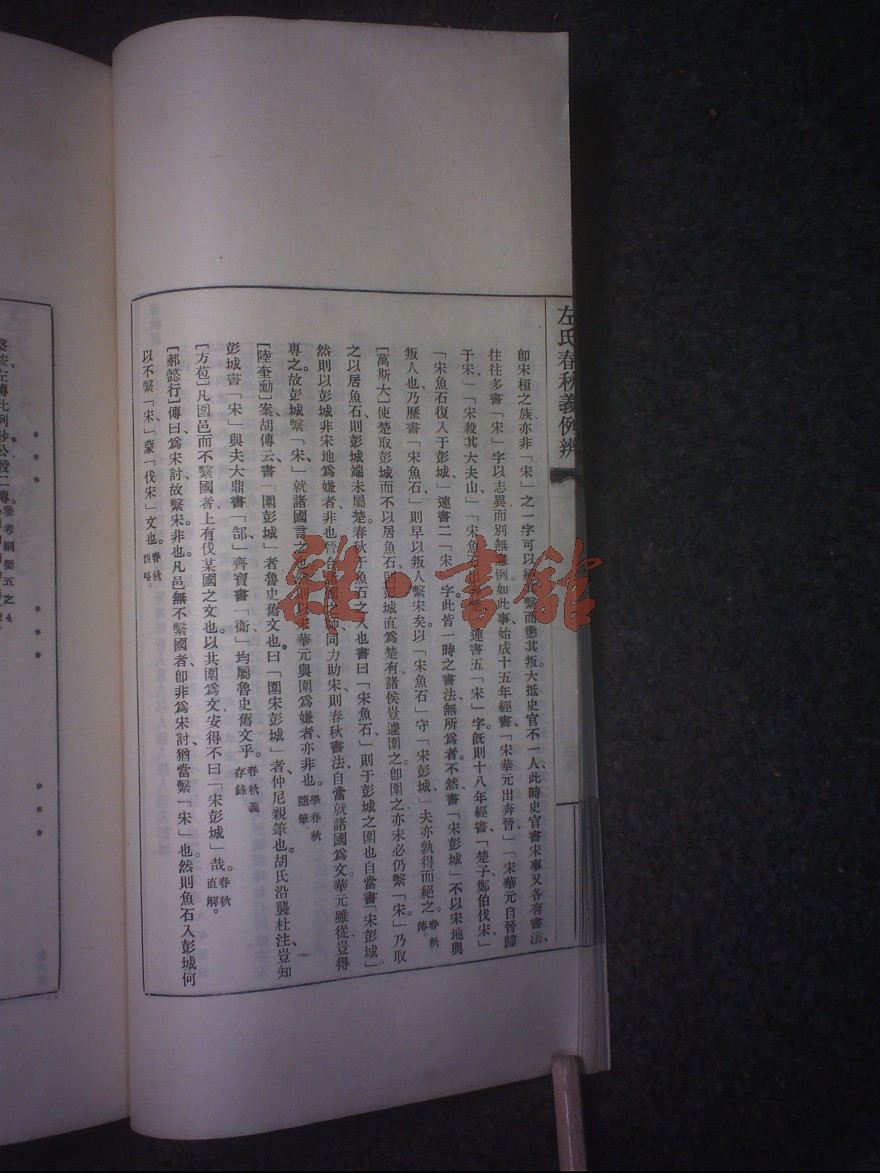 左氏春秋義例辨
卽宋桓之族亦非「宋」之一字可以繫而懲其叛大抵史官不一人此時史官書宋事又各有書法、
往往多書「宋」字以志異而別無義例如此事始成十五年經書「宋華元出奔晉」「宋華元自晉歸
于宋」「宋殺其大夫山」「宋魚石出連書五「宋」字旣則十八年經書「楚子鄭伯伐宋」
「宋魚石復入于彭城」連書二「宋」字此皆一時之書法無所爲者不然書「宋彭城」不以宋地與
叛人也乃歷書「宋魚石」則早以叛人繫宋矣以「宋魚石」守「宋彭城」夫亦孰得而絕之。春秋傳。
[萬斯大]使楚取彭城而不以居魚石則彭城直爲楚有諸侯豈遽圍之卽圍之亦未必仍繫「宋」乃取
之以居魚石則彭城端未屬楚春秋于魚石之入也書曰「宋魚石」則于彭城之圍也自當書「宋彭城」
然則以彭城非宋地爲嫌者非也晉合諸國之師同力助宋則春秋書法自當就諸國爲文華元雖從豈得
專之故彭城繫「宋」就諸國言之也則以宋華元與圍爲嫌者亦非也。學春秋隨筆
[陸奎勳]案胡傳云書「圍彭城」者魯史舊文也曰「圍宋彭城」者仲尼親筆也胡氏沿襲杜注豈知
彭城書「宋」與夫大鼎書「郜」齊寶書「衞」均屬魯史舊文乎。春秋義存錄。
[方苞]凡圍邑而不繫國者上有伐某國之文也以其圍爲文安得不曰「宋彭城」哉。春秋直解。
[郝懿行]傳曰爲宋討故繫宋非也凡邑無不繫國者卽非爲宋討猶當繫「宋」也然則魚石入彭城何
以不繫「宋」蒙「伐宋」文也。春秋說略
參考綱要五之4
雜·書館